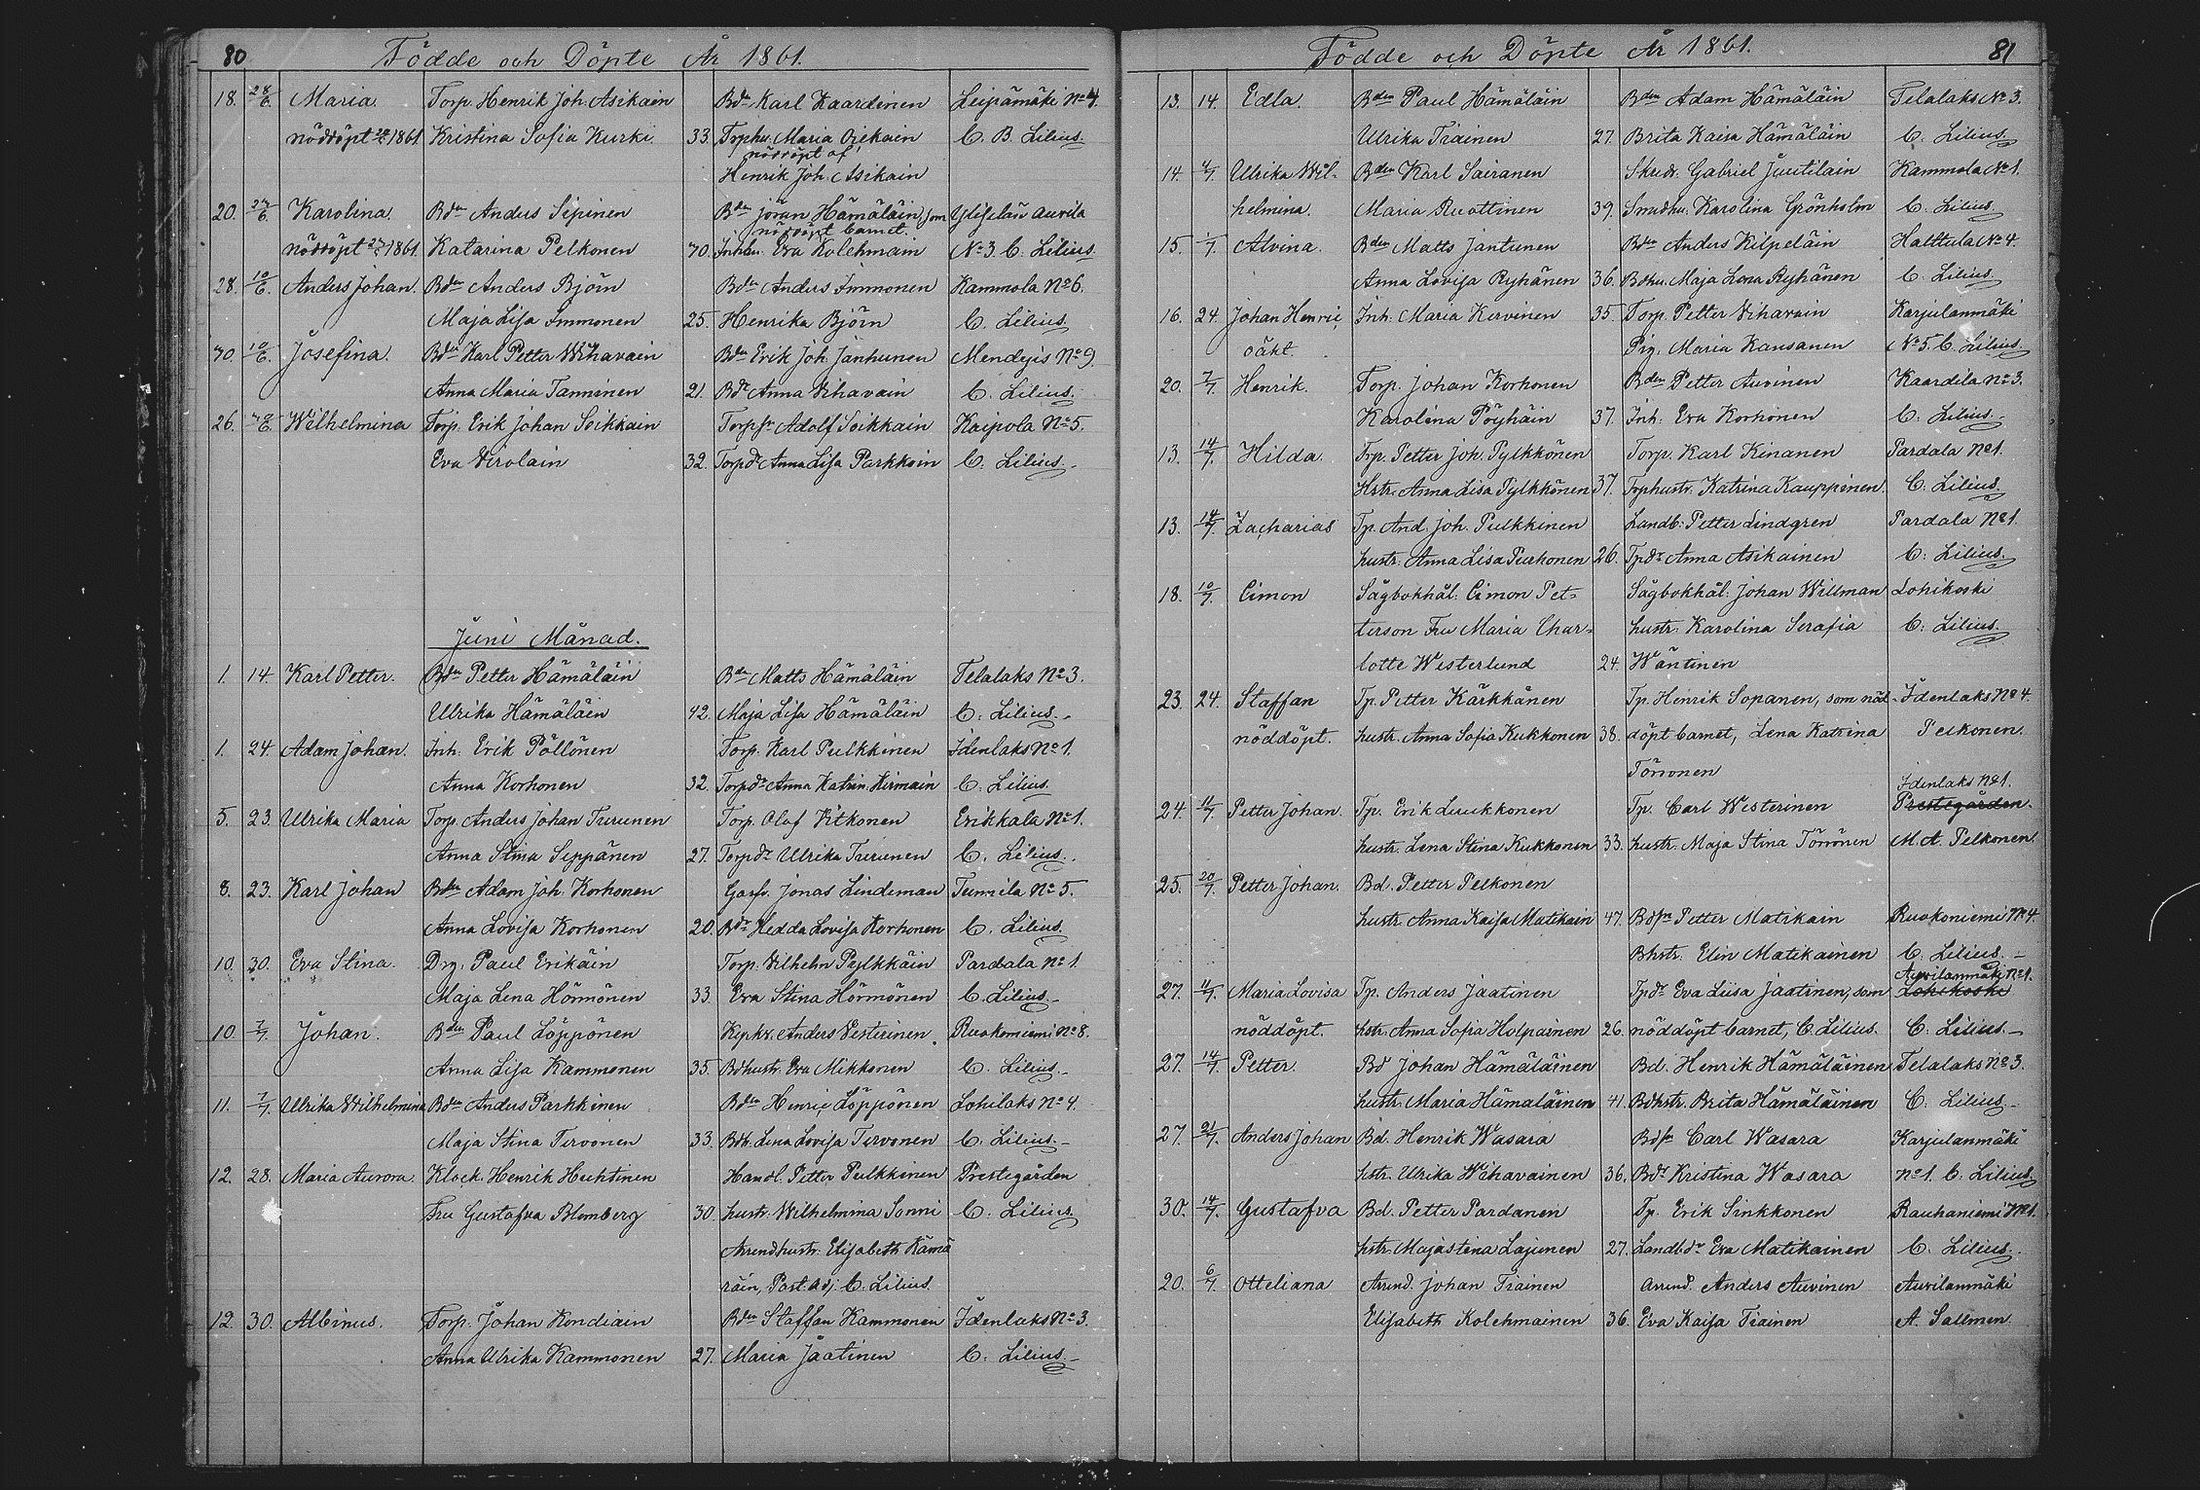 80 Födde och Döpte År 1861.
18. 28/6. Maria. Torp. Henrik Joh. Asikain Bdn Karl Kaardinen Leipämäki No 4.
nöddöpt 1861 Kristina Sofia Kurki. 33. Torphu. Maria Ojekain C. B. Lilius.
nöddöpt af
Henrik Joh. Asikain
20. 27/6. Karolina. Bdn Anders Sepinen Bdn Jöran Hämäläin, som Auvila
nöddöpt barnet.
nöddöpt 1861 Katarina Pelkonen 40. Inhhu. Eva Kolehmain No 3. C. Lilius.
28. 10/6. Anders Johan. Bdn Anders Björn Bdn Anders Immonen Kammola No 6.
Maja Lisa Immonen 25. Henrika Björn C. Lilius.
30. 10/6. Josefina. Bdn Karl Petter Wihavain Bdn Erik Joh. Janhunen Mendyis No 9.
Anna Maria Tanninen 21. Bdr Anna Vihavain C. Lilius.
26. Wilhelmina Torp. Erik Johan Soikkain Torpsn Adolf Soikkain Kaipola No 5.
Eva Virolain 32. Torpdr Anna Lisa Parkkoin C. Lilius.
Juni Månad.
1. 14. Karl Petter. Bdn Petter Hämäläin Bdn Matts Hämäläin Telalaks No 3.
Ulrika Hämäläin 42. Maja Lisa Hämäläin C. Lilius.
1. 24. Adam Johan. Inh. Erik Pöllönen Torp. Karl Pulkkinen Idenlaks No 1.
Anna Korhonen 32. Torpdr Anna Katrin. Hirmain C. Lilius.
5. 23. Ulrika Maria Torp. Anders Johan Turunen Torp. Olof Pitkonen Erikkala No 1.
Anna Stina Seppänen 27. Torpdr Ulrika Turunen C. Lilius.
8. 23. Karl Johan Bdn Adam Joh. Korhonen Garfv. Jonas Lindeman Tuomila No 5.
Anna Lovisa Korhonen 20. Bdr Hedda Lovisa Korhonen C. Lilius.
10. 30. Eva Stina. Drg. Paul Erikäin Torp. Vilhelm Pylkkäin Pardala No 1
Maja Lena Hörmönen 33. Eva Stina Hörmönen C. Lilius.
10. 7/7. Johan. Bdn Paul Löppönen Kypkr. Anders Vesterinen. Ruokoniemi No 8.
Anna Lisa Kammonen 35. Bdhustr. Eva Mikkonen C. Lilius.
11. 7/7. Ulrika Wilhelmina Bdn Anders Parkkinen Bdn Henric Löppönen Lohilaks No 4.
Maja Stina Tervonen 33. Bdh. Lena Lovisa Tervonen C. Lilius.
12. 28. Maria Aurora. Klock. Henrik Huhtinen Handl. Petter Pulkkinen Prestegården
Fru Gustafva Blomberg 30. hustr. Wilhelmina Sonni C. Lilius.
Arrendhustr. Elisabeth Kämä
räin, Past. Adj. C. Lilius.
12. 30. Albinus. Torp. Johan Kondiain Bdn Staffan Kammonen Idenlaks No 3.
Anna Ulrika Kammonen 27. Maria Jaatinen C. Lilius.
Födde och Döpte År 1861. 81
13. 14. Edla. Bden Paul Hämäläin Bden Adam Hämäläin Telalaks No 3.
Ulrika Tiainen 27. Brita Kaisa Hämäläin C. Lilius.
14. 4/7. Ulrika Wil- Bden Karl Sairanen Skrädr. Gabriel Juutilain Kammola No 1.
helmina. Maria Ruottinen 39. Smedhu. Karolina Grönholm C. Lilius.
15. 1/7. Alvina. Bden Matts Jantunen Bden Anders Kilpeläin Halttula No 4.
Anna Lovisa Ryhänen 36. Bdhu. Maja Lena Ryhänen C. Lilius.
16. 24. Johan Henric, Inh. Maria Kervinen 35. Torp. Petter Vihavain Karjulanmäki
oäkt. Pig. Maria Kansanen No 5. C. Lilius.
20. 7/7. Henrik. Torp. Johan Korhonen Bden Petter Auvinen Kaardila No 3.
Karolina Pöyhäin 37. Inh. Eva Korhonen C. Lilius.
13. 14/7. Hilda. Trp. Petter Joh. Pylkkönen Torp. Karl Kinanen Pardala No 1.
Hstr. Anna Lisa Pylkkönen 37. Trphustr. Katrina Kauppinen. C. Lilius.
13. 14/7. Zacharias Tp. And. Joh. Pulkkinen Landb. Petter Lindgren Pardala No 1.
hustr. Anna Lisa Purhonen 26. Tpdr Anna Asikainen C. Lilius.
18. 10/7. Cimon Sågbokhål. Cimon Pet- Sågbokhål. Johan Willman Lohikoski
terson Fru Maria Char- hustr. Karolina Serafia C. Lilius.
lotte Westerlund 24. Wäntinen
23. 24. Staffan Tp. Petter Kärkkänen Tp. Henrik Sopanen, som nöd- Idenlaks No 4.
nöddöpt. hustr. Anna Sofia Kukkonen 38. döpt barnet, Lena Katrina Pelkonen.
Törronen
Idenlaks No 1.
24. 11/7. Petter Johan. Tp. Erik Luukkonen Tp. Carl Westerinen Prestegården.
hustr. Lena Stina Kukkonen 33. hustr. Maja Stina Törrönen M. A. Pelkonen.
25. 20/7. Petter Johan. Bd. Petter Pelkonen
hustr. Anna Kaisa Matikain 47. Bdsn Petter Matikain Ruokoniemi No 4.
Bhstr. Elin Matikainen C. Lilius.
Auvilanmäki No 1.
27. 11/7. Maria Lovisa Tp. Anders Jaatinen Tpdr Eva Liisa Jaatinen, som Lohikoski
nöddöpt. hstr. Anna Sofia Holpainen 26. nöddöpt barnet, C. Lilius. C. Lilius.
27. 14/7. Petter. Bd Johan Hämäläinen Bd. Henrik Hämäläinen Telalaks No 3.
hustr. Maria Hämäläinen 41. Bdhstr. Brita Hämäläinen C. Lilius.
27. 21/7. Anders Johan Bd. Henrik Wasara Bdsn Carl Wasara Karjulanmäki
hstr. Ulrika Wihavainen 36. Bdr Kristina Wasara No 1. C. Lilius.
30. 14/7. Gustafva Bd. Petter Pardanen Tp. Erik Sinkkonen Rauhaniemi No 1.
hstr. Maja Stina Lajunen 27. Landbdr Eva Matikainen C. Lilius.
20. 6/7. Otteliana Arend. Johan Tiainen Arrend. Anders Auvinen Auvilanmäki
Elisabeth Kolehmainen 36. Eva Kaisa Tiainen A. Sallmen.